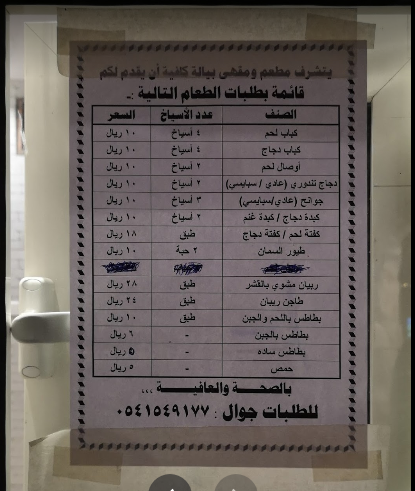 يتشرف مطعم ومقهى بيالة كافية أن يقدم لكم
قائمة بطلبات الطعام التالية :ـ
الصنف عدد الأسياخ السعر
كباب لحم ٤ أسياخ ١٠ ريال
كباب دجاج ٤ أسياخ ١٠ ريال
أوصال لحم ٢ أسياخ ١٠ ريال
دجاج تندوري (عادي / سبايسي) ٢ أسياخ ١٠ ريال
جوانح (عادي/سبايسي) ٣ أسياخ ١٠ ريال
كبدة دجاج / كبدة غنم ٢ أسياخ ١٠ ريال
كفتة لحم / كفتة دجاج طبق ١٨ ريال
طيور السمان ٢ حبة ١٠ ريال
ربيان مشوي بالقشر طبق ٢٨ ريال
طاجن ربيان طبق ٢٤ ريال
بطاطس باللحم والجبن طبق ١٠ ريال
بطاطس بالجبن - ٦ ريال
بطاطس ساده - ٥ ريال
حمص - ٥ ريال
بالصحة والعافية ،،،
للطلبات جوال : ٠٥٤١٥٤٩١٧٧